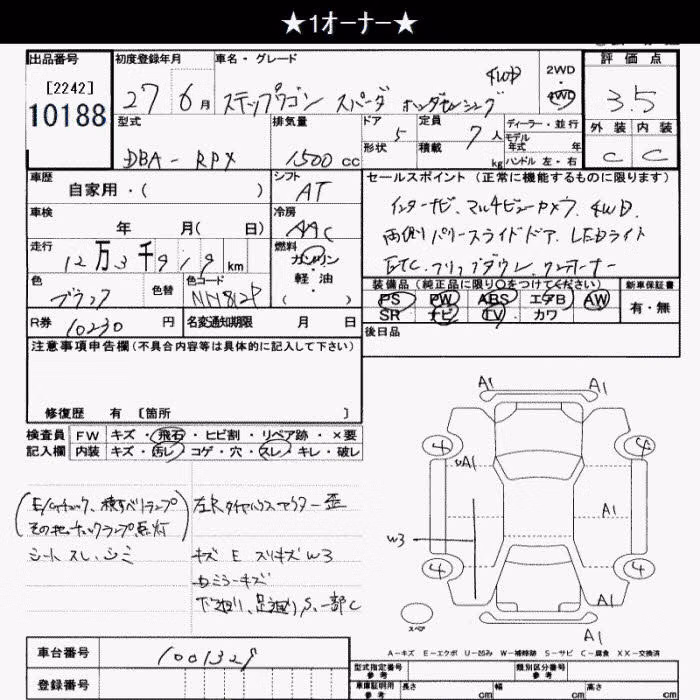 ★1オーナー★
出品番号 初度登録年月 車名・グレード 評価点
[2242]
10188
27 6月 ステップワゴン スパーダ ホンダセンシング 4WD
2WD
・
4WD
3.5
型式 排気量 ドア 定員 ディーラー・並行
モデル
年式 年
外装 内装
5 7人
形状 積載 kg ハンドル 左・右
DBA-RPX 1500cc
C C
車歴 シフト セールスポイント (正常に機能するものに限ります)
自家用・( ) AT
インターナビ、マルチビューカメラ、4WD、
車検 冷房
年 月( 日) AAC
両側パワースライドドア、LEDライト
走行 燃料
12万3千919km ガソリン
・
軽油
・( )
ETC、フリップダウン、ワンオーナー
色 色替 色コード
ブラック NH812P
装備品 (純正品に限り○をつけてください) 新車保証書
PS PW ABS エアB AW
SR ナビ TV カワ
有・無
R券 10230円 名変通知期限 月 日
後日品
注意事項申告欄(不具合内容等は具体的に記入して下さい)
修復歴 有 [箇所 ]
検査員 FW キズ・飛石・ヒビ割・リペア跡・×要
記入欄 内装 キズ・汚レ・コゲ・穴・スレ・キレ・破レ
(E/Gチェック、横すべりランプ
その他チェックランプ点灯)
シートスレ、シミ
キズ E スリキズ W3
ミラーキズ
S、一部C
A1 A1
4 4
A1
A1
W3
4 4
A1
A1
スペア
A-キズ E-エクボ U-凹み W-補修跡 S-サビ C-腐食 XX-交換済
車台番号 1001329
登録番号
型式指定番号
参考
類別区分番号
参考
車庫証明用
参考
長さ cm 幅 cm 高さ cm